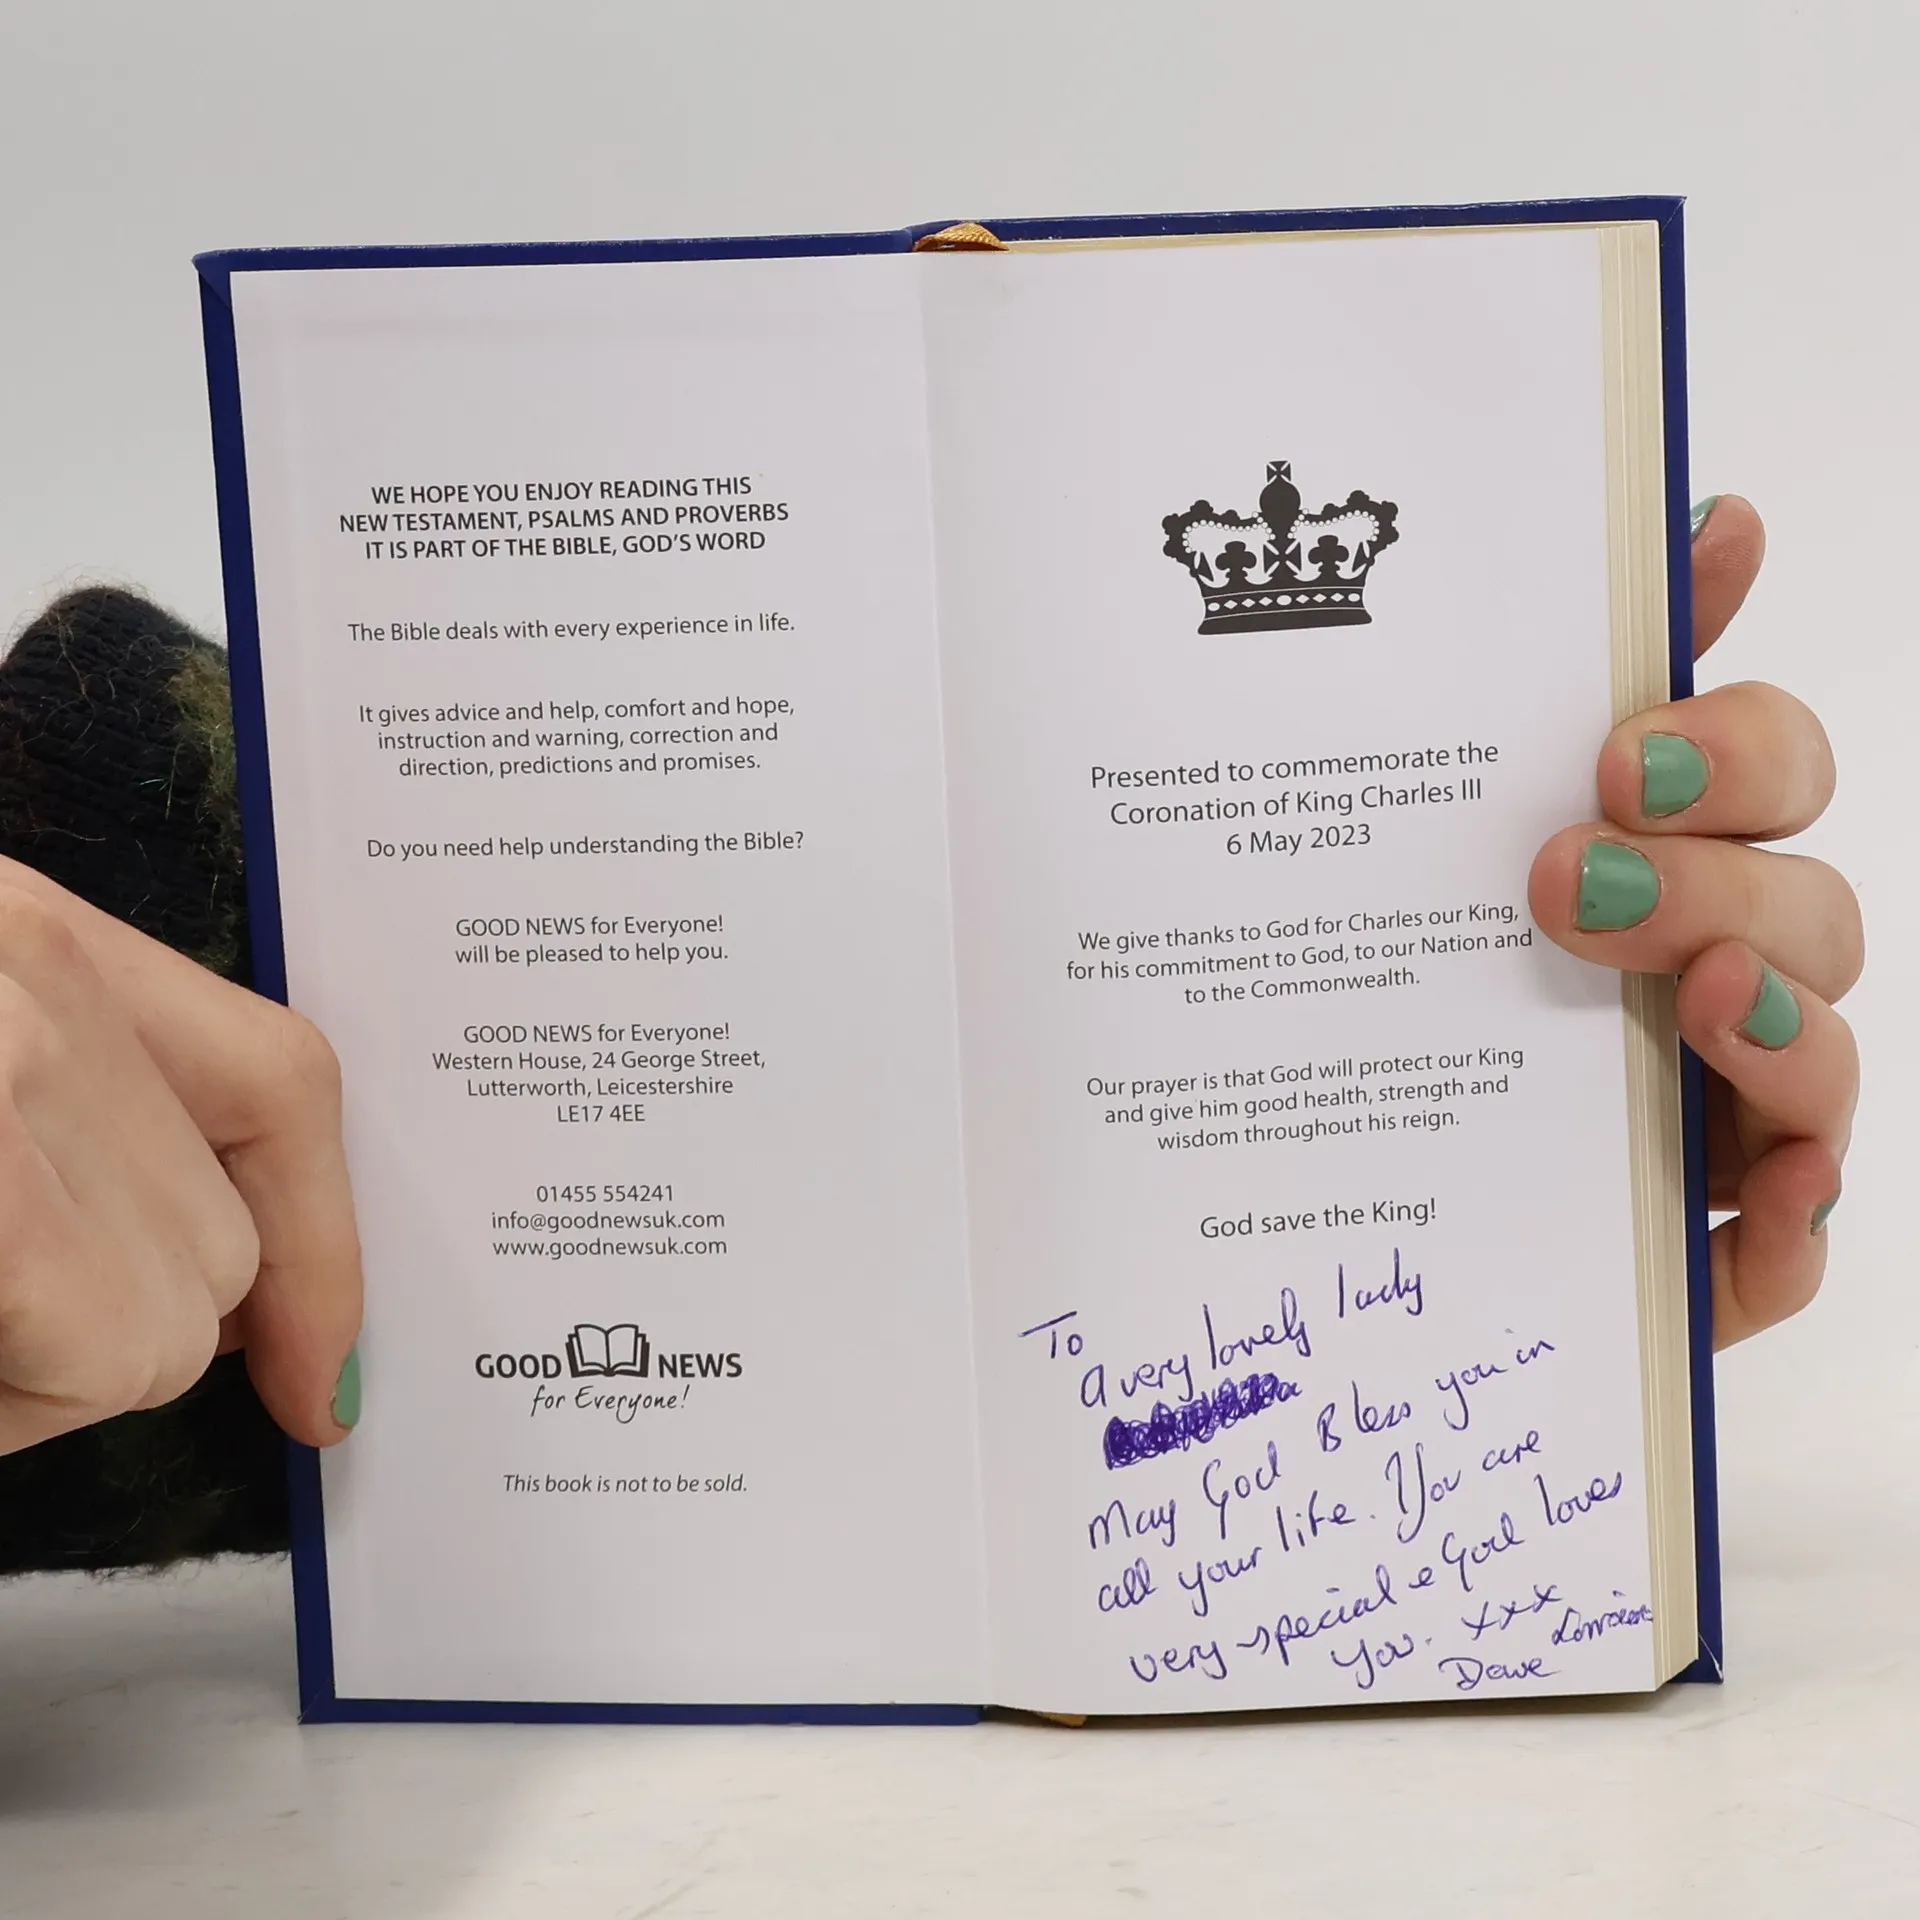 WE HOPE YOU ENJOY READING THIS
NEW TESTAMENT, PSALMS AND PROVERBS
IT IS PART OF THE BIBLE, GOD'S WORD
The Bible deals with every experience in life.
It gives advice and help, comfort and hope,
instruction and warning, correction and
direction, predictions and promises.
Do you need help understanding the Bible?
GOOD NEWS for Everyone!
will be pleased to help you.
GOOD NEWS for Everyone!
Western House, 24 George Street,
Lutterworth, Leicestershire
LE17 4EE
01455 554241
info@goodnewsuk.com
www.goodnewsuk.com
GOOD NEWS
for Everyone!
This book is not to be sold.
Presented to commemorate the
Coronation of King Charles III
6 May 2023
We give thanks to God for Charles our King,
for his commitment to God, to our Nation and
to the Commonwealth.
Our prayer is that God will protect our King
and give him good health, strength and
wisdom throughout his reign.
God save the King!
To
a very lovely lady
May God Bless you in
all your life. You are
very special e God loves
you. xxx
Dave